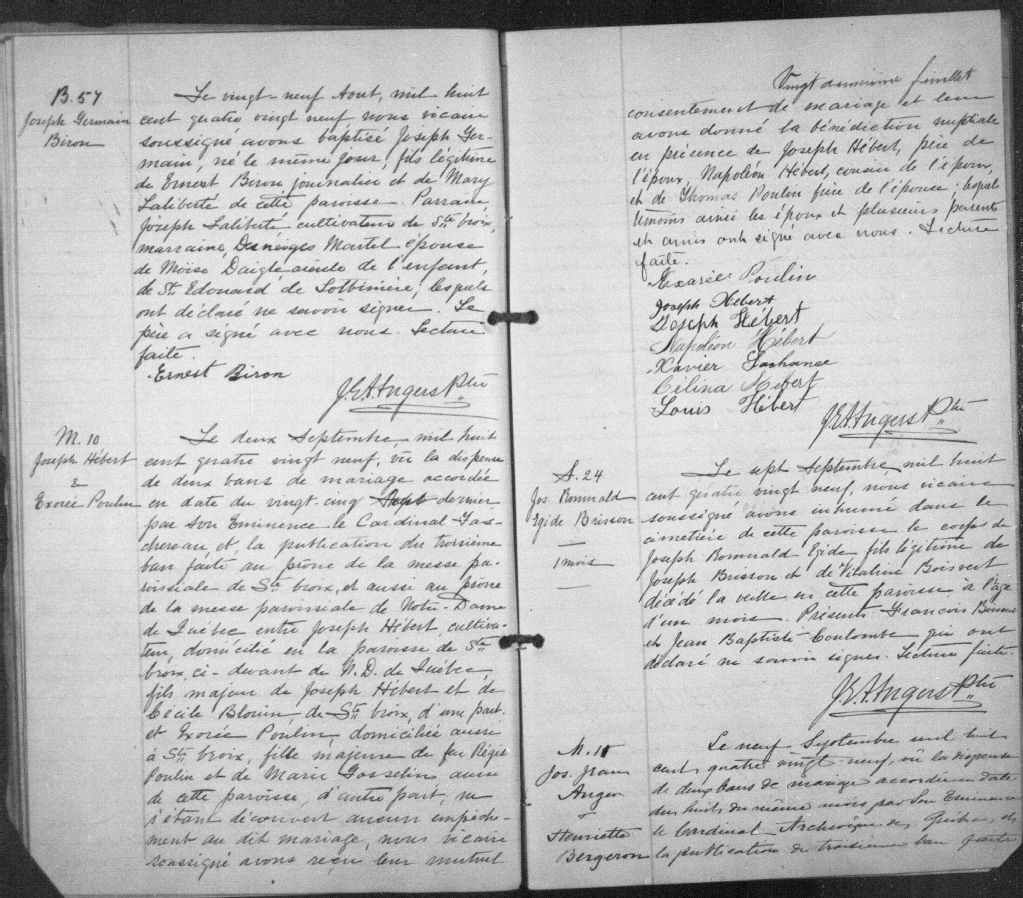 B. 57
Joseph Germain
Biron
Le vingt-neuf Aout, mil huit
cent quatre vingt neuf nous vicaire
soussigné avons baptisé Joseph Ger-
main, né le même jour, fils légitime
de Ernest Biron journalier et de Mary
Laliberté de cette paroisse. Parrain,
Joseph Laliberté cultivateur de Ste Croix,
marraine, Desneiges Martel épouse
de Moïse Daigle aieule de l'enfant,
de St Edouard de Lotbinière, lesquels
ont déclaré ne savoir signer. Le
père a signé avec nous. Lecture
faite.
Ernest Biron
J.E.A. Angers Ptre
M. 10
Joseph Hébert
&
Exorée Poulin
Le deux Septembre, mil huit
cent quatre vingt neuf, vu la dispense
de deux bans de mariage accordée
en date du vingt cinq Août dernier
par Son Eminence le Cardinal Tas-
chereau et, la publication du troisième
ban faite au prône de la messe pa-
roissiale de Ste Croix, et aussi au prône
de la messe paroissiale de Notre-Dame
de Québec entre Joseph Hébert, cultiva-
teur, domicilié en la paroisse de Ste
Croix, ci-devant de N.D. de Québec,
fils majeur de Joseph Hébert et de
Cécile Blouin, de Ste Croix, d'une part.
et Exorée Poulin domiciliée aussi
à Ste Croix, fille majeure de feu Régis
Poulin et de Marie Gosselin aussi
de cette paroisse, d'autre part, ne
s'étant découvert aucun empêche-
ment au dit mariage, nous vicaire
soussigné avons reçu leur mutuel
Vingt deuxième feuillet
consentement de mariage et leur
avons donné la bénédiction nuptiale
en présence de Joseph Hébert, père de
l'époux, Napoléon Hébert, cousin de l'époux,
et de Thomas Poulin frère de l'épouse; lesquels
témoins ainsi les époux et plusieurs parents
et amis ont signé avec nous. Lecture
faite.
Exarée Poulin
Joseph Hébert
Joseph Hébert
Napoléon Hébert
Xavier Lachance
Célina Hébert
Louis Hébert
J.E.A. Angers Ptre
S. 24
Jos. Romuald
Egide Brisson
1 mois
Le sept Septembre, mil huit
cent quatre vingt neuf, nous vicaire
soussigné avons inhumé dans le
cimetière de cette paroisse le corps de
Joseph Romuald Egide, fils légitime de
Joseph Brisson et de Vitaline Boisvert
décédé la veille en cette paroisse à l'âge
d'un mois. Présents François Boisvert
et Jean Baptiste Coulombe qui ont
déclaré ne savoir signer. Lecture faite.
J.E.A. Angers Ptre
M. 11
Jos. Jean
Auger
&
Henriette
Bergeron
Le neuf Septembre mil huit
cent quatre vingt-neuf, vu la dispense
de deux bans de mariage accordée en date
du huit du même mois par Son Eminence
le Cardinal Archevêque de Québec, et
la publication du troisième ban faite